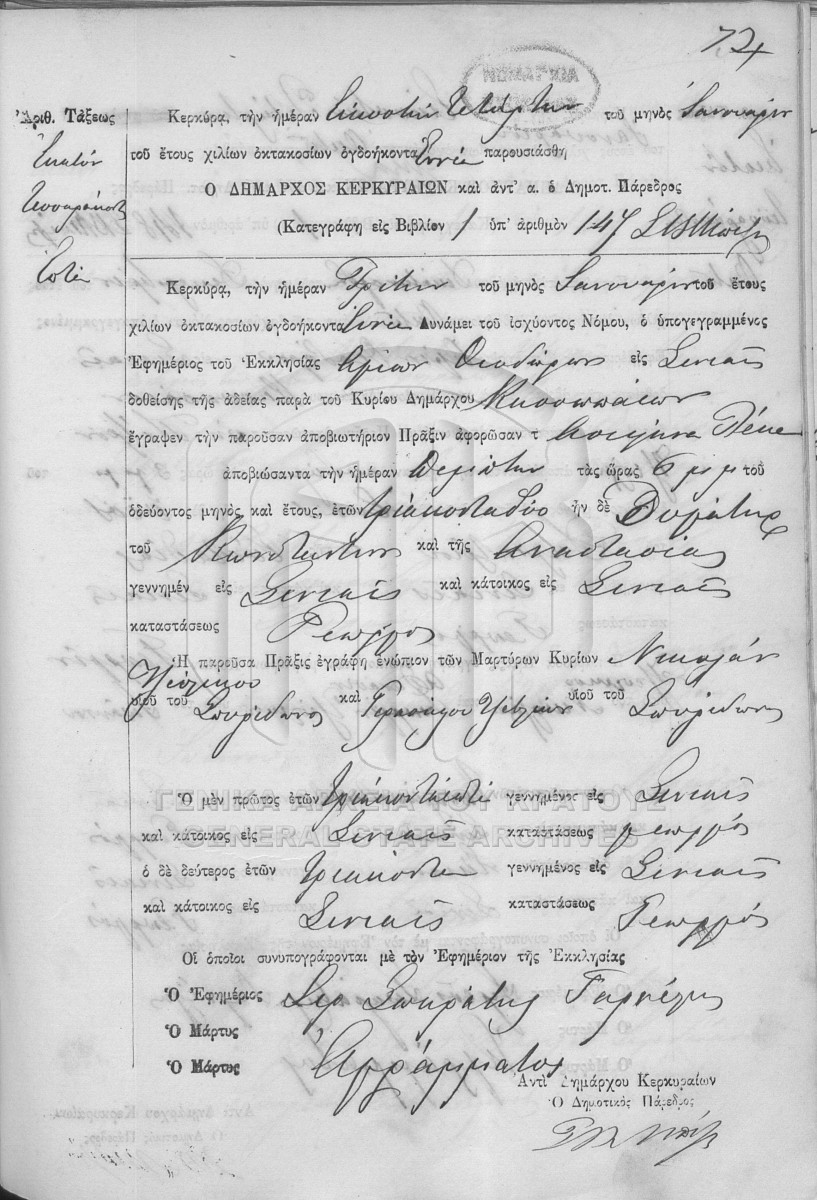 72
Ἀριθ. Τάξεως
Ἑκατόν
Τεσσαράκοντα
Ἑπτά
Κερκύρᾳ, τὴν ἡμέραν Εἰκοστήν Τετάρτην τοῦ μηνὸς Ἰανουαρίου
τοῦ ἔτους χιλίων ὀκτακοσίων ὀγδοήκοντα Ἐννέα παρουσιάσθη
Ο ΔΗΜΑΡΧΟΣ ΚΕΡΚΥΡΑΙΩΝ καὶ ἀντ' α. ὁ Δημοτ. Πάρεδρος
(Κατεγράφη εἰς Βιβλίον 1 ὑπ' ἀριθμὸν 147
Κερκύρᾳ, τὴν ἡμέραν Τρίτην τοῦ μηνὸς Ἰανουαρίου τοῦ ἔτους
χιλίων ὀκτακοσίων ὀγδοήκοντα Ἐννέα Δυνάμει τοῦ ἰσχύοντος Νόμου, ὁ ὑπογεγραμμένος
Ἐφημέριος τοῦ Ἐκκλησίας Ἁγίων Θεοδώρων εἰς Σινιαῖς
δοθείσης τῆς ἀδείας παρὰ τοῦ Κυρίου Δημάρχου Κασσωπαίων
ἔγραψεν τὴν παροῦσαν ἀποβιωτήριον Πρᾶξιν ἀφορῶσαν τ
ἀποβιώσαντα τὴν ἡμέραν τὰς ὥρας 6 μ μ τοῦ
ὁδεύοντος μηνὸς, καὶ ἔτους, ἐτῶν τριάκοντα δύο ἦν δὲ Θυγάτηρ
τοῦ Κωνσταντίνου καὶ τῆς Ἀναστασίας
γεννημέν εἰς Σινιαῖς καὶ κάτοικος εἰς Σινιαῖς
καταστάσεως Γεωργός
Ἡ παροῦσα Πρᾶξις ἐγράφη ἐνώπιον τῶν Μαρτύρων Κυρίων Νικολάου
υἱοῦ τοῦ Σπυρίδωνος καὶ Γερασίμου υἱοῦ τοῦ Σπυρίδωνος
Ὁ μὲν πρῶτος ἐτῶν τριάκοντα ἑπτά γεννημένος εἰς Σινιαῖς
καὶ κάτοικος εἰς Σινιαῖς καταστάσεως γεωργός
ὁ δὲ δεύτερος ἐτῶν τριάκοντα γεννημένος εἰς Σινιαῖς
καὶ κάτοικος εἰς Σινιαῖς καταστάσεως Γεωργός
Οἱ ὁποῖοι συνυπογράφονται μὲ τὸν Ἐφημέριον τῆς Ἐκκλησίας
Ὁ Ἐφημέριος Ἱερ Σωκράτης
Ὁ Μάρτυς
Ὁ Μάρτυς Ἀγράμματοι
Ἀντὶ Δημάρχου Κερκυραίων
Ὁ Δημοτικὸς Πάρεδρος
ΓΕΝΙΚΑ ΑΡΧΕΙΑ ΤΟΥ ΚΡΑΤΟΥΣ
GENERAL STATE ARCHIVES